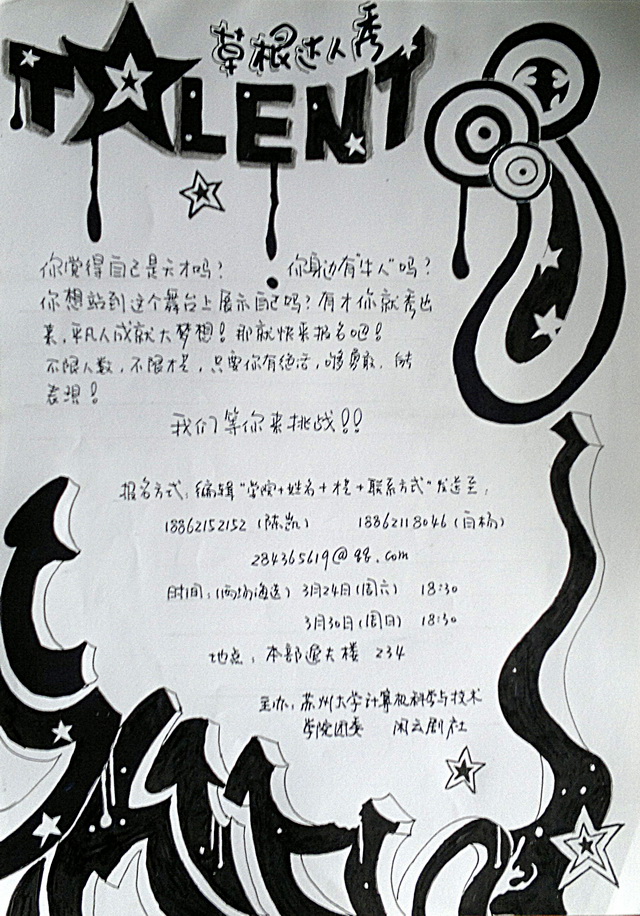 草根达人秀
TALENT
你觉得自己是天才吗？ 你身边有"牛人"吗？
你想站到这个舞台上展示自己吗？有才你就秀出
来，平凡人成就大梦想！那就快来报名吧！
不限人数，不限才艺，只要你有绝活，够勇敢，能
表现！
我们等你来挑战！！
报名方式：编辑"学院+姓名+才艺+联系方式"发送至：
18862152152（陈凯） 18862118046（白杨）
284365619@qq.com
时间：（两场海选） 3月24日（周六） 18:30
3月30日（周日） 18:30
地点：本部逸夫楼 234
主办：苏州大学计算机科学与技术
学院团委 闲云剧社